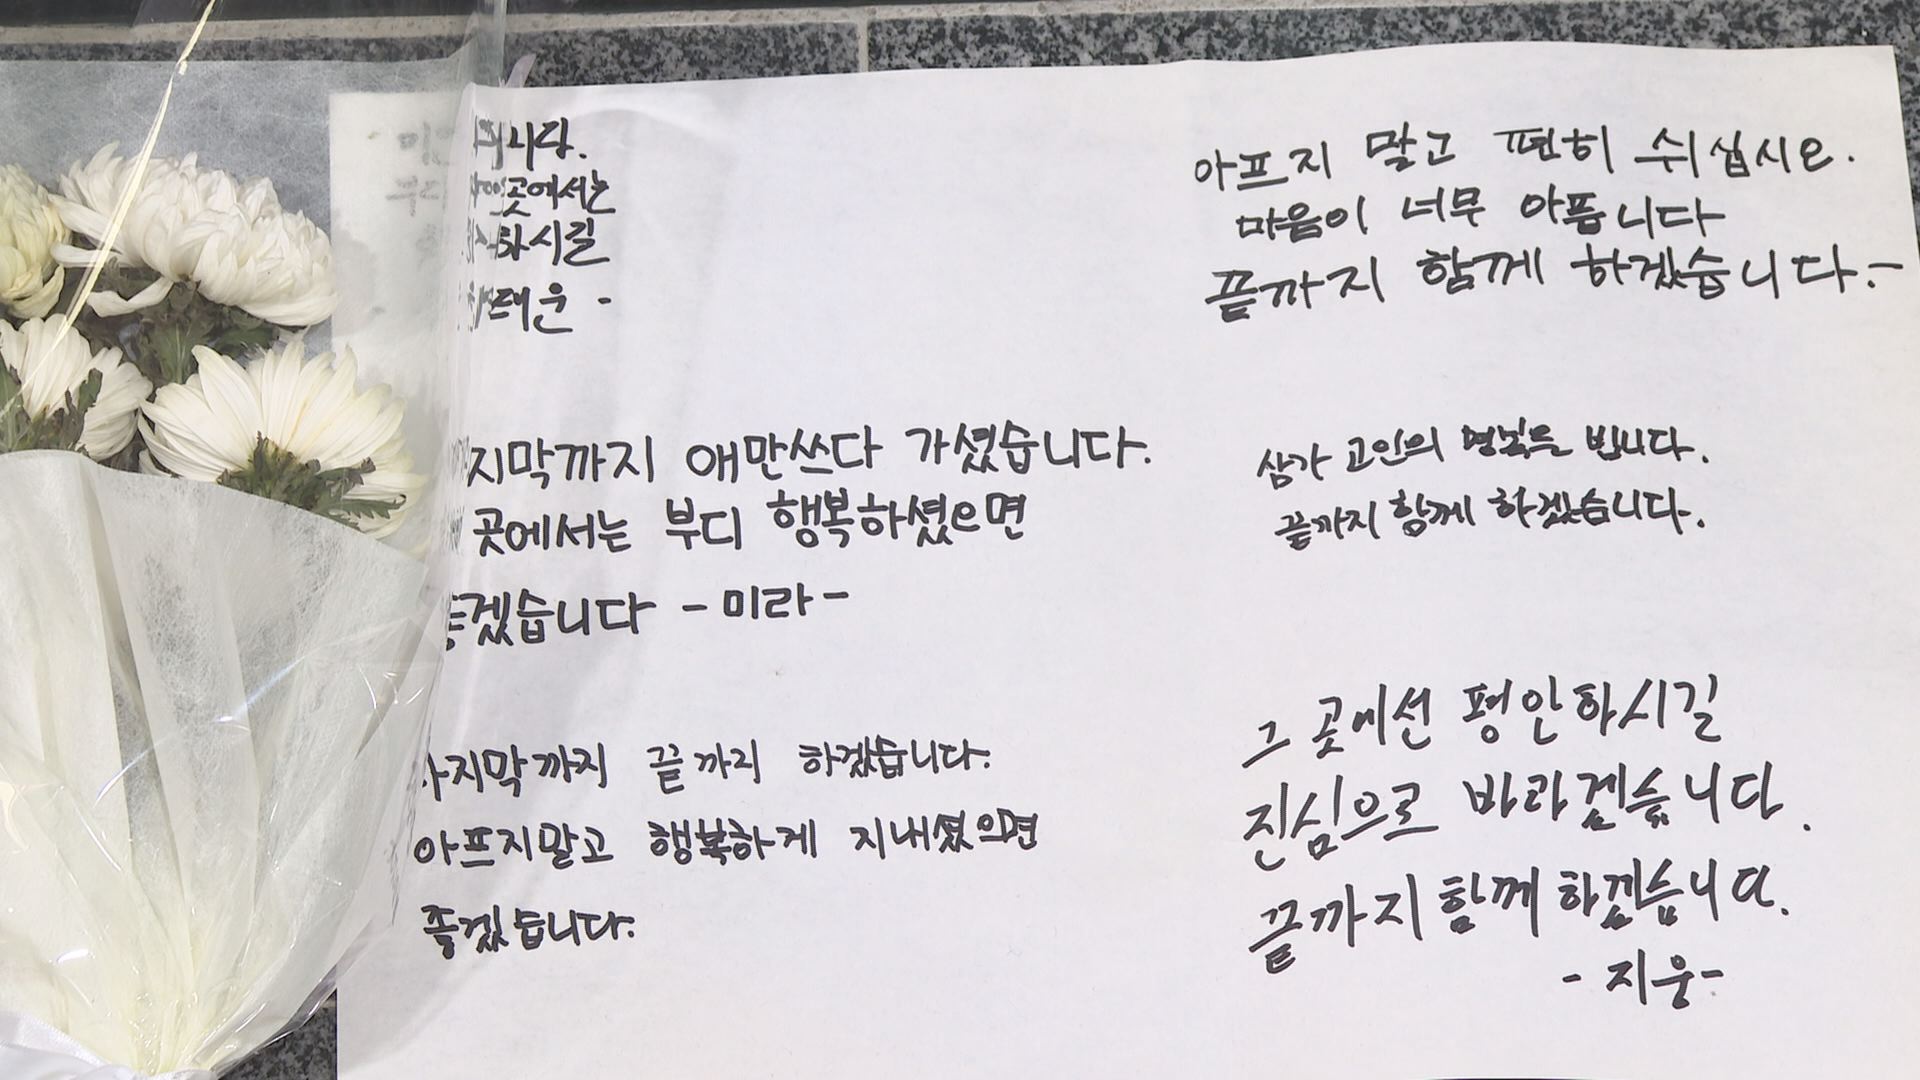 곳에서는
하시길
아프지 말고 편히 쉬십시오.
마음이 너무 아픕니다
끝까지 함께 하겠습니다.-
지막까지 애만쓰다 가셨습니다.
곳에서는 부디 행복하셨으면
겠습니다 - 미라 -
삼가 고인의 명복을 빕니다.
끝까지 함께 하겠습니다.
마지막까지 끝까지 하겠습니다.
아프지말고 행복하게 지내셨으면
좋겠습니다.
그 곳에선 평안하시길
진심으로 바라겠습니다.
끝까지 함께 하겠습니다.
- 지웅-